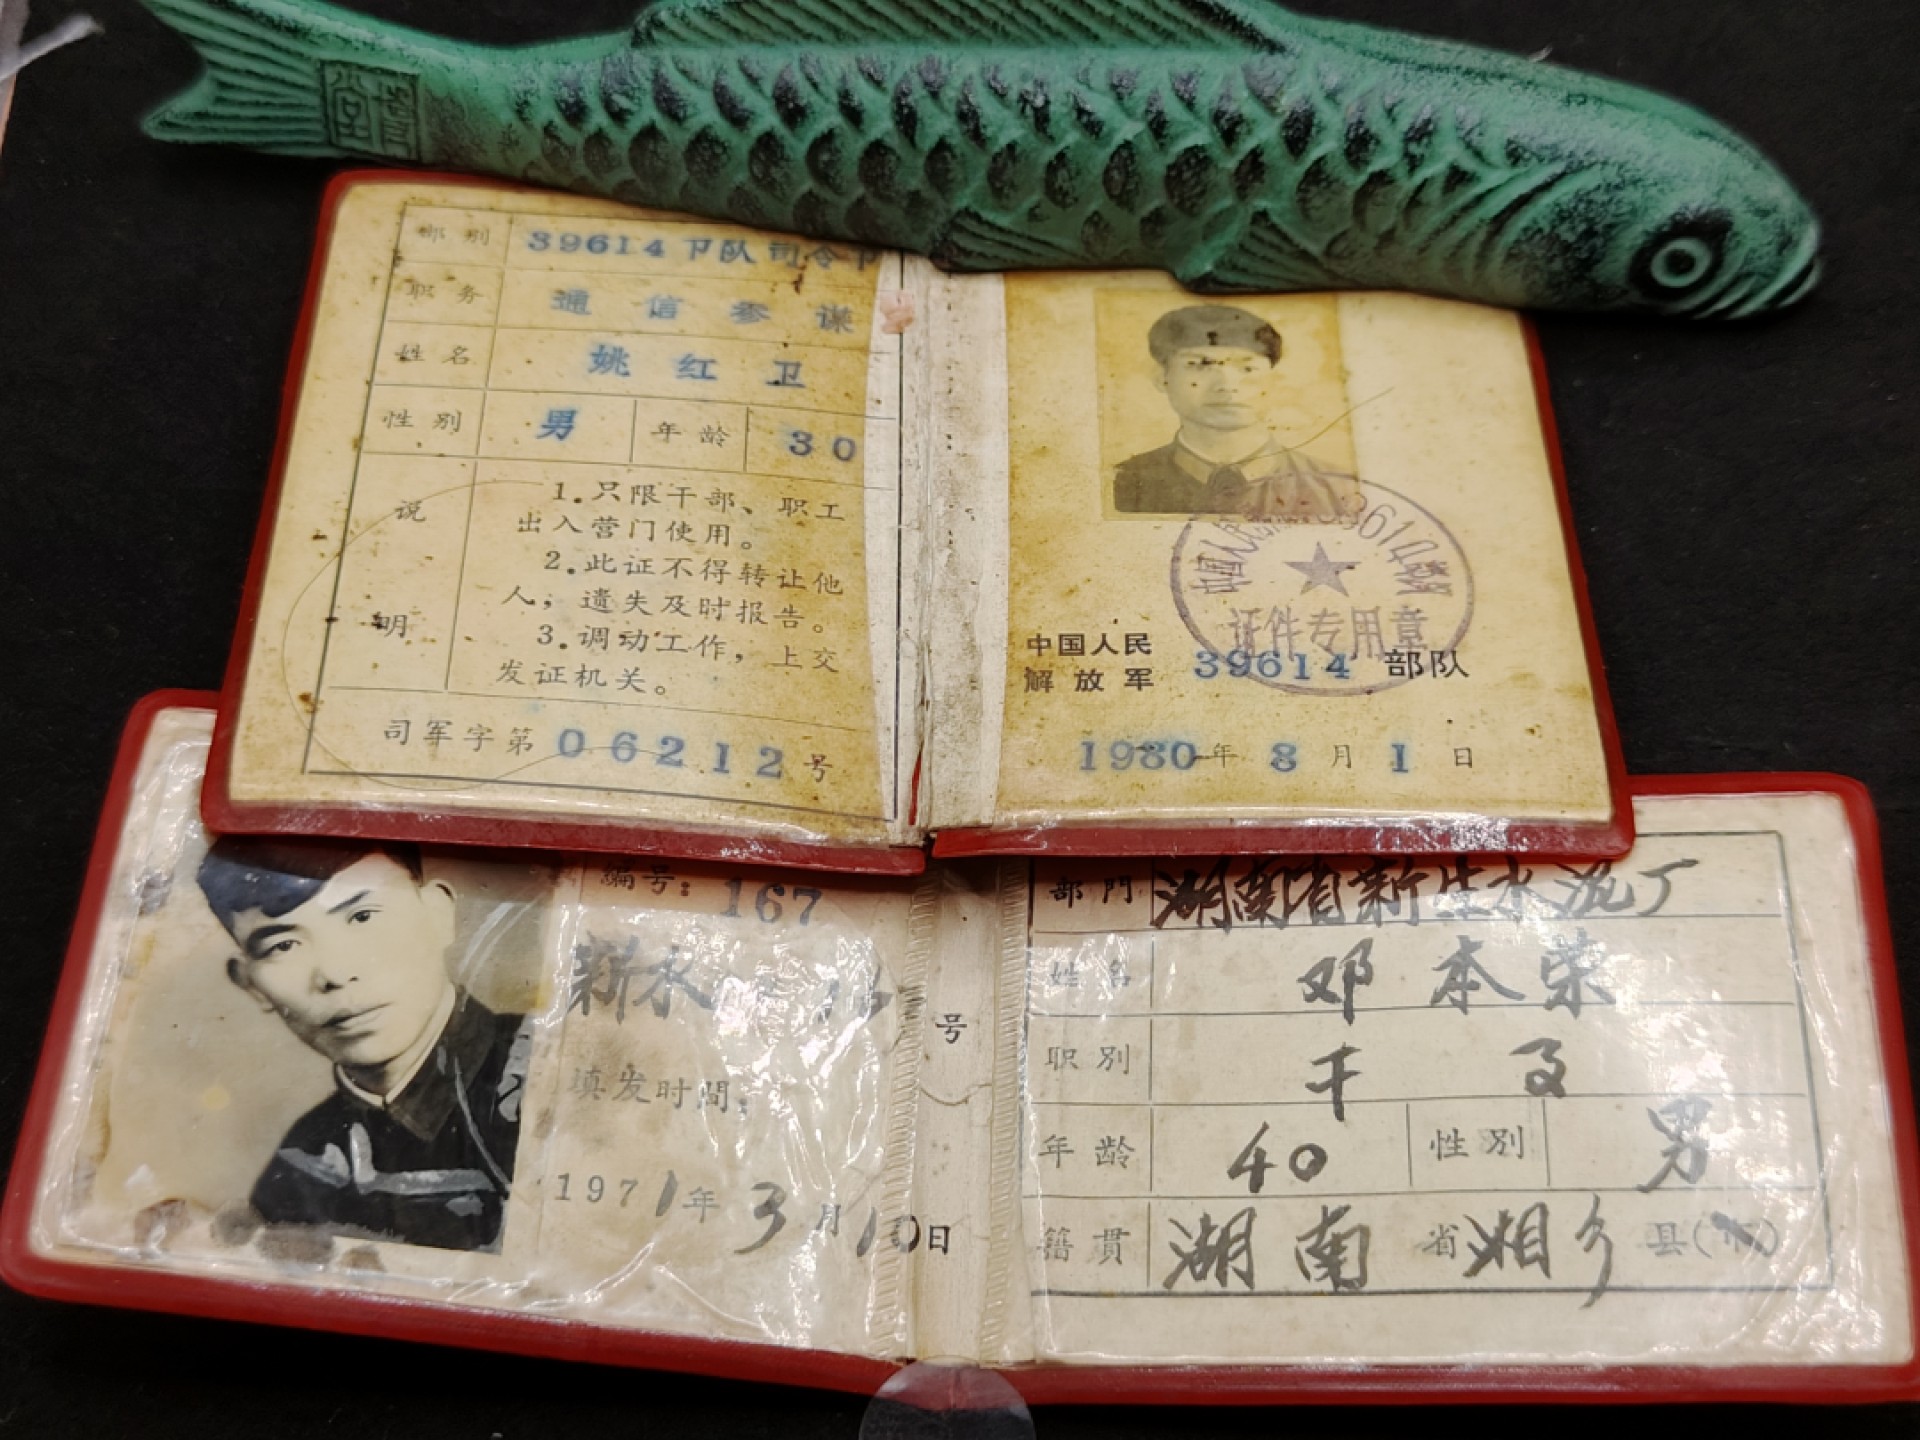 部别 39614部队司令部
职务 通信参谋
姓名 姚红卫
性别 男 年龄 30
说明
1.只限干部、职工
出入营门使用。
2.此证不得转让他
人，遗失及时报告。
3.调动工作，上交
发证机关。
司军字第 06212 号
证件专用章
中国人民
解放军 39614 部队
1980年 8月 1日
编号：167
新水
号
填发时间：
1971年 3月 10日
部門 湖南省新生水泥厂
姓名 邓本荣
职别 干
年龄 40 性别 男
籍贯 湖南省湘乡县(市)